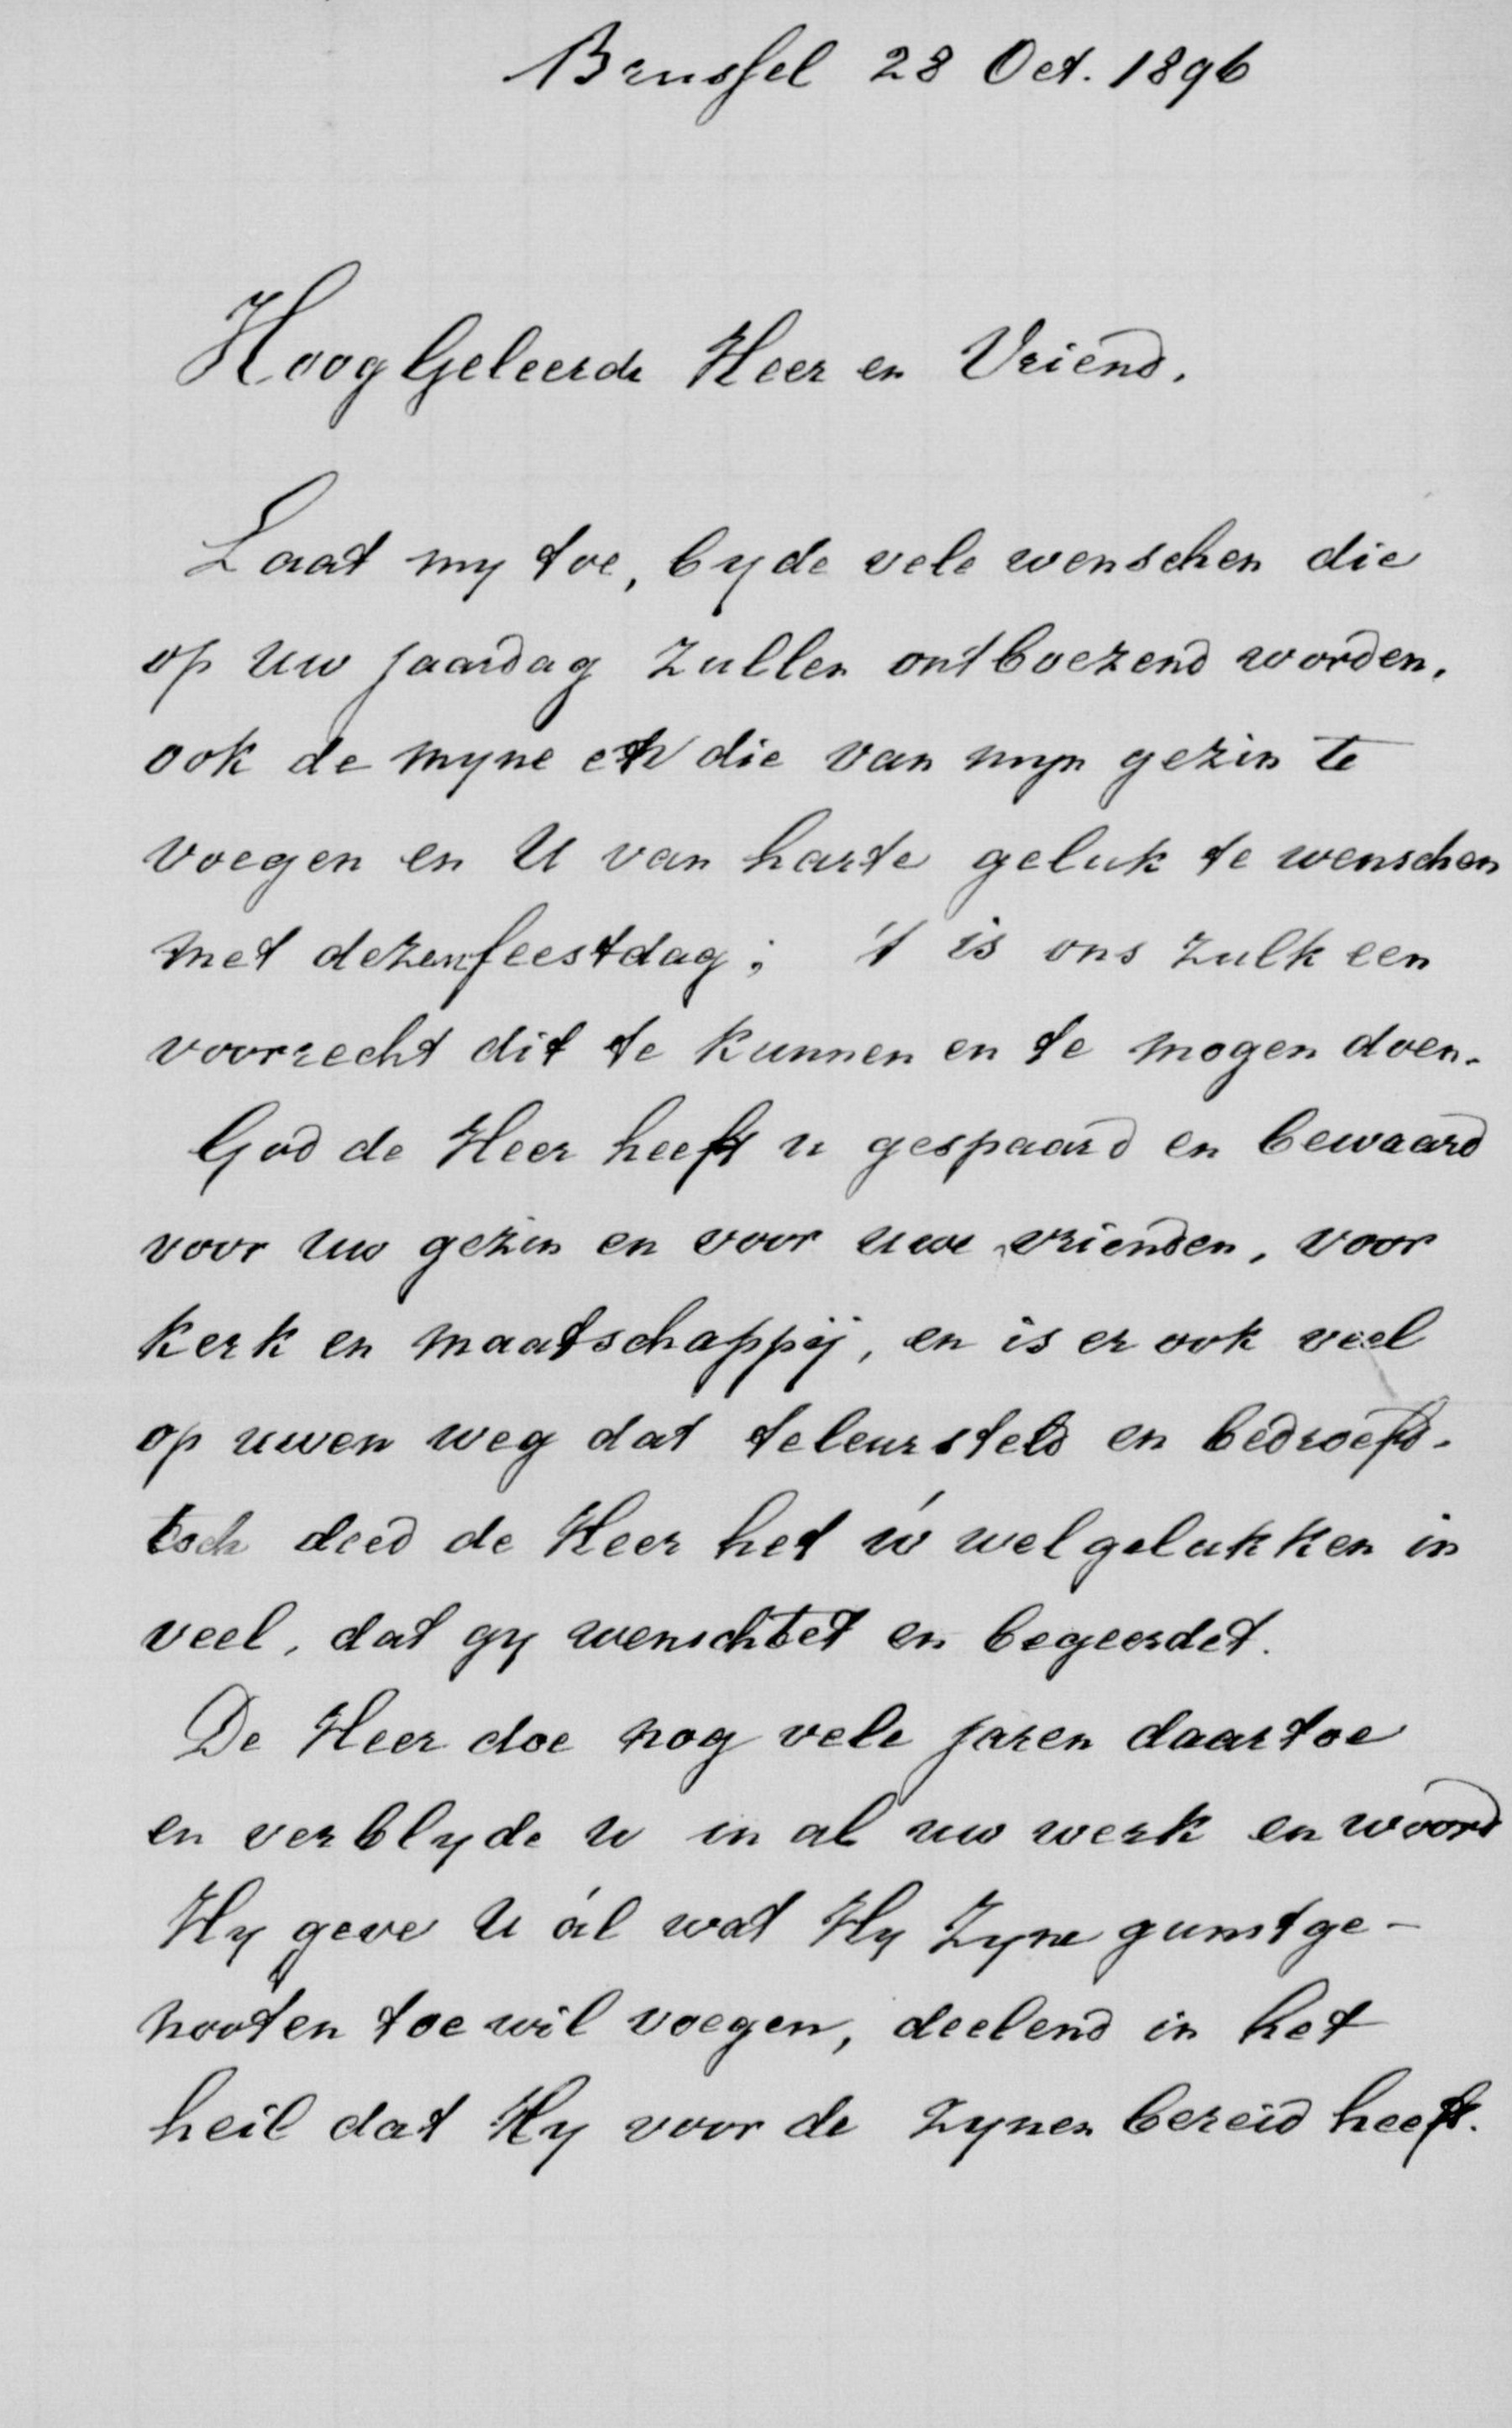 Brussel 28 Oct. 1896
HoogGeleerde Heer en Vriend.
Laat my toe, by de vele wenschen die
op uw jaardag zullen ontboezend worden,
ook de myne en die van myn gezin te
voegen en U van harte geluk te wenschen
met dezen feestdag; 't is ons zulk een
voorrecht dit te kunnen en te mogen doen.
God de Heer heeft u gespaard en bewaard
voor uw gezin en voor uwe vrienden, voor
kerk en maatschappij, en is er ook veel
op uwen weg dat teleursteld en bedroefd-
toch deed de Heer het ú wel gelukken in
veel, dat gy wenschtet en begeerdet.
De Heer doe nog vele jaren daartoe
en verblyde u in al uw werk en woord
Hy geve U ál wat Hy Zyne gunstge-
nooten toe wil voegen, deelend in het
heil dat Hy voor de zynen bereid heeft.